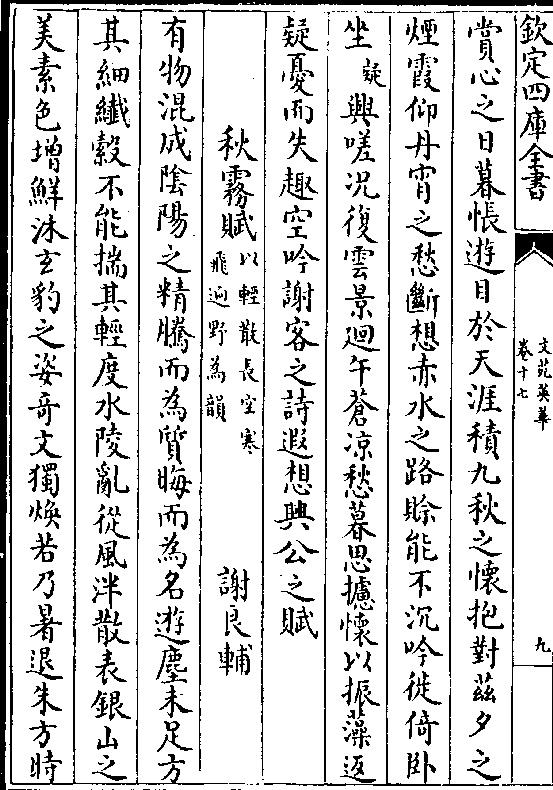 欽定四庫全書
文苑英華
卷十七
九
賞心之日暮悵遊目於天涯積九秋之懷抱對茲夕之
煙霞仰丹霄之愁斷想赤水之路賒能不沉吟徙倚臥
坐疑興嗟况復雲景廻午蒼凉愁暮思攄懷以振藻返
疑憂而失趣空吟謝客之詩遐想興公之賦
秋霧賦以輕散長空寒飛迥野為韻
謝良輔
有物混成陰陽之精騰而為質晦而為名遊塵未足方
其細纎縠不能揣其輕度水陵亂從風泮散表銀山之
美素色增鮮沐玄豹之姿奇文獨煥若乃暑退朱方時